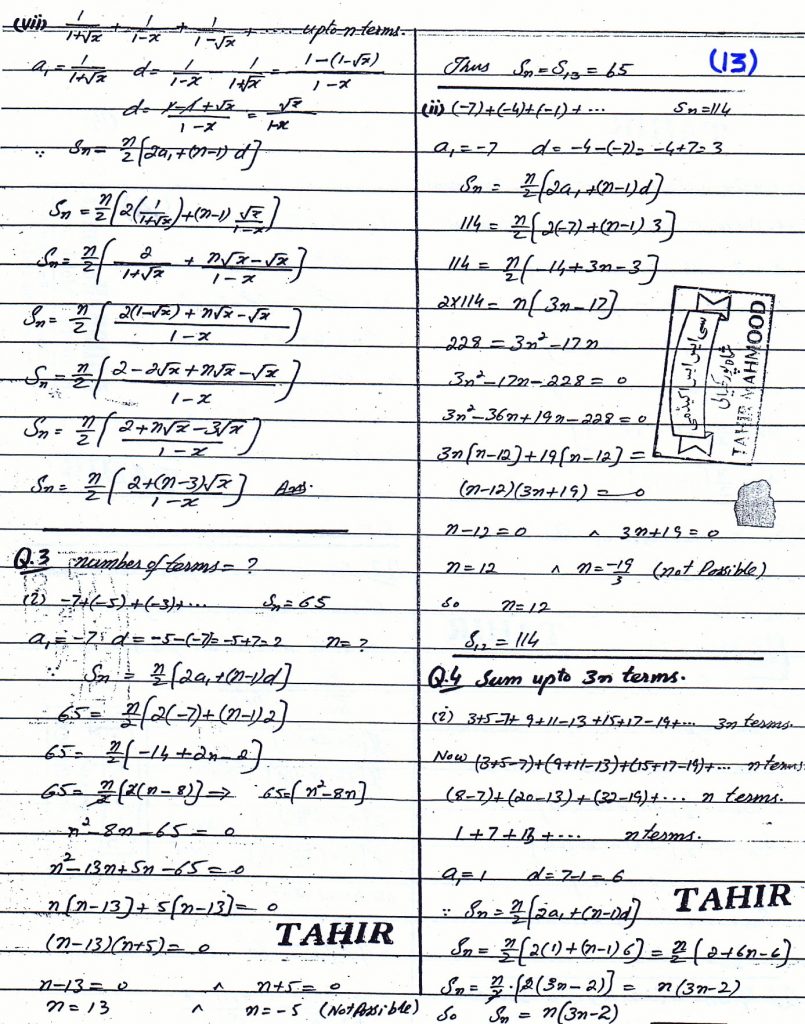 (viii) 1/(1+√x) + 1/(1-x) + 1/(1-√x) + ..... upto n terms.
a₁ = 1/(1+√x) d = 1/(1-x) - 1/(1+√x) = (1-(1-√x))/(1-x)
d = (1-1+√x)/(1-x) = √x/(1-x)
∵ Sn = n/2 [2a₁+(n-1)d]
Sn = n/2 [2(1/(1+√x))+(n-1) √x/(1-x)]
Sn = n/2 [2/(1+√x) + (n√x-√x)/(1-x)]
Sn = n/2 [(2(1-√x)+n√x-√x)/(1-x)]
Sn = n/2 [(2-2√x+n√x-√x)/(1-x)]
Sn = n/2 [(2+n√x-3√x)/(1-x)]
Sn = n/2 [(2+(n-3)√x)/(1-x)] Ans.
Q.3 number of terms = ?
(i) -7+(-5)+(-3)+... Sn = 65
a₁ = -7 d = -5-(-7) = -5+7 = 2 n = ?
∵ Sn = n/2 [2a₁+(n-1)d]
65 = n/2 [2(-7)+(n-1)2]
65 = n/2 [-14+2n-2]
65 = n/2 [2(n-8)] => 65 = [n²-8n]
n²-8n-65 = 0
n²-13n+5n-65 = 0
n[n-13]+5[n-13] = 0
(n-13)(n+5) = 0
TAHIR
n-13 = 0 ^ n+5 = 0
n = 13 ^ n = -5 (Not Possible)
(13)
Thus Sn = S₁₃ = 65
(ii) (-7)+(-4)+(-1)+... Sn = 114
a₁ = -7 d = -4-(-7) = -4+7 = 3
Sn = n/2 [2a₁+(n-1)d]
114 = n/2 [2(-7)+(n-1)3]
114 = n/2 [-14+3n-3]
2×114 = n[3n-17]
228 = 3n²-17n
3n²-17n-228 = 0
3n²-36n+19n-228 = 0
3n[n-12]+19[n-12] =
(n-12)(3n+19) = 0
n-12 = 0 ^ 3n+19 = 0
n = 12 ^ n = -19/3 (not Possible)
so n = 12
S₁₂ = 114
سی ایس ایس اکیڈمی
TAHIR MAHMOOD
Q.4 Sum upto 3n terms.
(i) 3+5-7+9+11-13+15+17-19+... 3n terms.
Now (3+5-7)+(9+11-13)+(15+17-19)+... n terms
(8-7)+(20-13)+(32-19)+... n terms.
1+7+13+... n terms.
a₁ = 1 d = 7-1 = 6
TAHIR
∵ Sn = n/2 [2a₁+(n-1)d]
Sn = n/2 [2(1)+(n-1)6] = n/2 [2+6n-6]
Sn = n/2 . [2(3n-2)] = n(3n-2)
So Sn = n(3n-2)